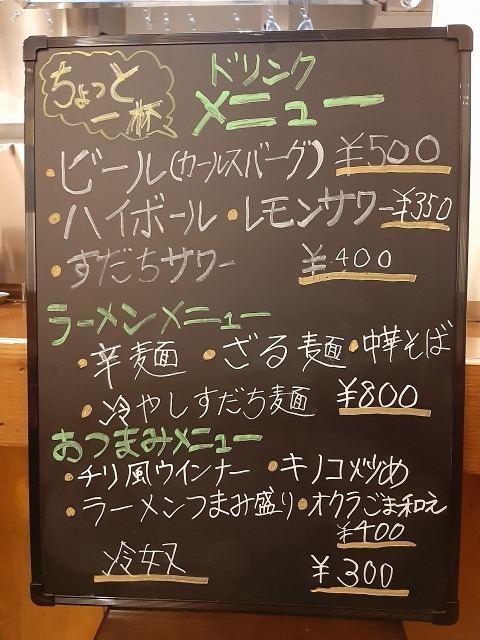 ちょっと
一杯
ドリンク
メニュー
・ビール(カールスバーグ) ¥500
・ハイボール ・レモンサワー ¥350
・すだちサワー ¥400
ラーメンメニュー
・辛麺 ・ざる麺 ・中華そば
・冷やしすだち麺 ¥800
おつまみメニュー
・チリ風ウインナー ・キノコ炒め
・ラーメンつまみ盛り ・オクラごま和え
¥400
冷奴 ¥300